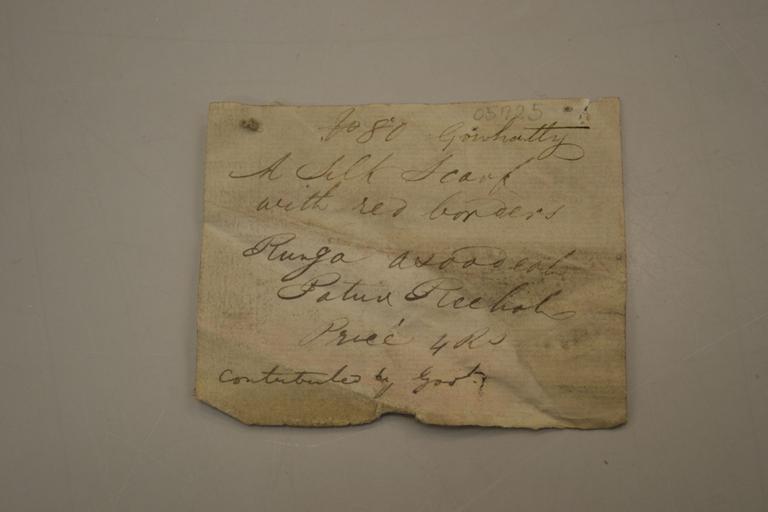 05725
No 80 Gowhatty
A Silk Scarf
with red borders
Runga
Patux
Price 4 Rs
contributed by Govt.